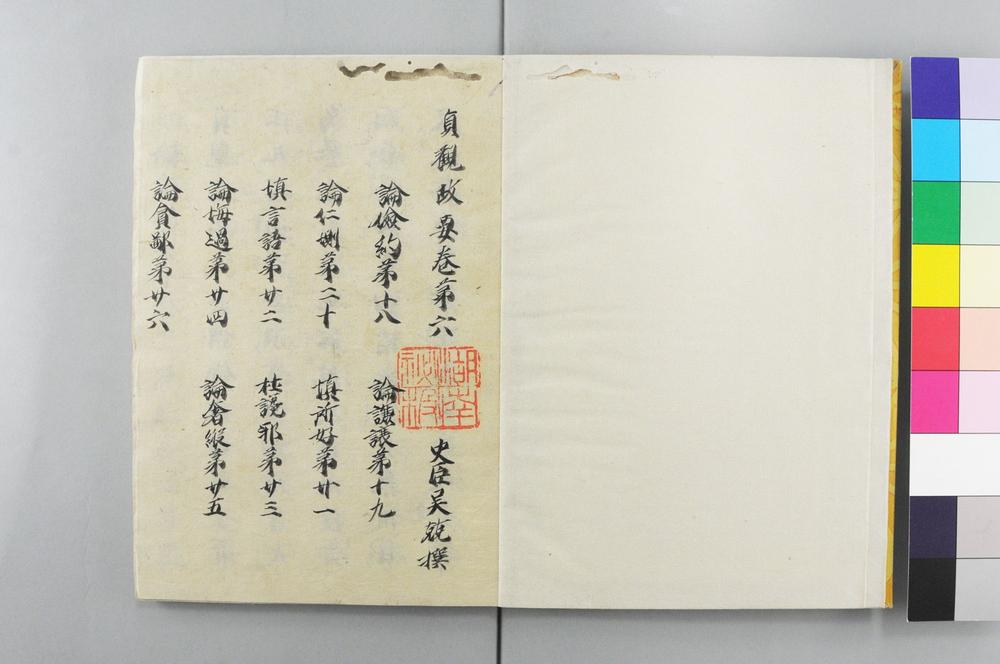 貞觀政要卷第六 史臣吳兢撰
論儉約第十八 論謙讓第十九
論仁惻第二十 慎所好第廿一
慎言語第廿二 杜讒邪第廿三
論悔過第廿四 論奢縱第廿五
論貪鄙第廿六
湖南